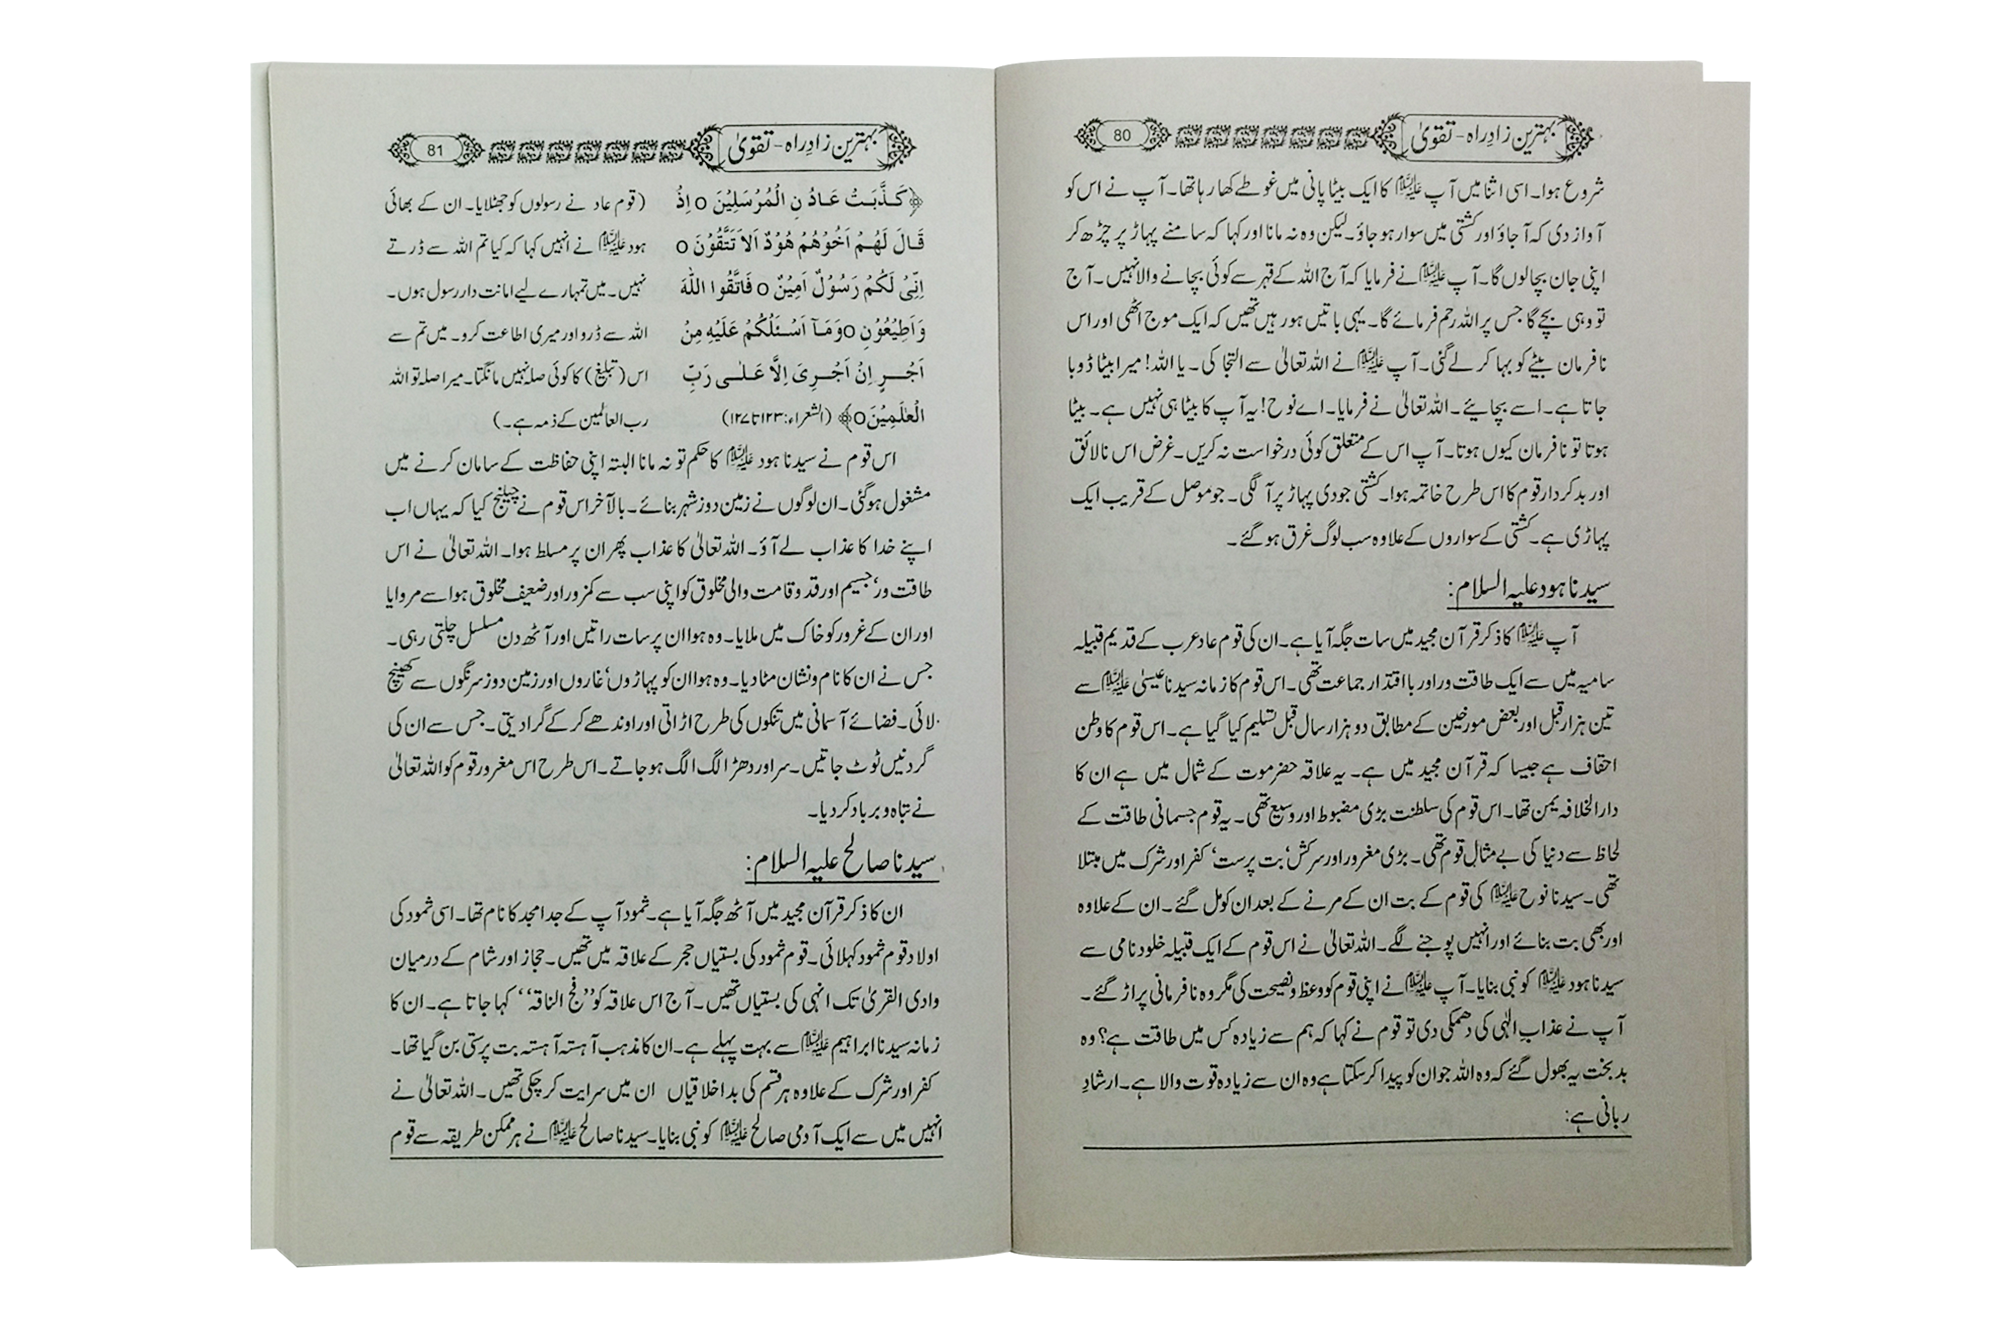 بہترین زادِ راہ - تقویٰ
80
شروع ہوا۔ اسی اثنا میں آپ علیہ السلام کا ایک بیٹا پانی میں غوطے کھا رہا تھا۔ آپ نے اس کو
آواز دی کہ آجاؤ اور کشتی میں سوار ہو جاؤ۔ لیکن وہ نہ مانا اور کہا کہ سامنے پہاڑ پر چڑھ کر
اپنی جان بچا لوں گا۔ آپ علیہ السلام نے فرمایا کہ آج اللہ کے قہر سے کوئی بچانے والا نہیں۔ آج
تو وہی بچے گا جس پر اللہ رحم فرمائے گا۔ یہی باتیں ہو رہیں تھیں کہ ایک موج اٹھی اور اس
نافرمان بیٹے کو بہا کر لے گئی۔ آپ علیہ السلام نے اللہ تعالیٰ سے التجا کی۔ یا اللہ! میرا بیٹا ڈوبا
جاتا ہے۔ اسے بچایئے۔ اللہ تعالیٰ نے فرمایا۔ اے نوح! یہ آپ کا بیٹا ہی نہیں ہے۔ بیٹا
ہوتا تو نافرمان کیوں ہوتا۔ آپ اس کے متعلق کوئی درخواست نہ کریں۔ غرض اس نالائق
اور بدکردار قوم کا اس طرح خاتمہ ہوا۔ کشتی جودی پہاڑ پر آ لگی۔ جو موصل کے قریب ایک
پہاڑی ہے۔ کشتی کے سواروں کے علاوہ سب لوگ غرق ہو گئے۔
سیدنا ہود علیہ السلام:
آپ علیہ السلام کا ذکر قرآن مجید میں سات جگہ آیا ہے۔ ان کی قوم عاد عرب کے قدیم قبیلہ
سامیہ میں سے ایک طاقت ور اور با اقتدار جماعت تھی۔ اس قوم کا زمانہ سیدنا عیسیٰ علیہ السلام سے
تین ہزار قبل اور بعض مورخین کے مطابق دو ہزار سال قبل تسلیم کیا گیا ہے۔ اس قوم کا وطن
احقاف ہے جیسا کہ قرآن مجید میں ہے۔ یہ علاقہ حضرموت کے شمال میں ہے ان کا
دارالخلافہ یمن تھا۔ اس قوم کی سلطنت بڑی مضبوط اور وسیع تھی۔ یہ قوم جسمانی طاقت کے
لحاظ سے دنیا کی بے مثال قوم تھی۔ بڑی مغرور اور سرکش‘ بت پرست‘ کفر اور شرک میں مبتلا
تھی۔ سیدنا نوح علیہ السلام کی قوم کے بت ان کے مرنے کے بعد ان کو مل گئے۔ ان کے علاوہ
اور بھی بت بنائے اور انہیں پوجنے لگے۔ اللہ تعالیٰ نے اس قوم کے ایک قبیلہ خلود نامی سے
سیدنا ہود علیہ السلام کو نبی بنایا۔ آپ علیہ السلام نے اپنی قوم کو وعظ و نصیحت کی مگر وہ نافرمانی پر اڑ گئے۔
آپ نے عذابِ الٰہی کی دھمکی دی تو قوم نے کہا کہ ہم سے زیادہ کس میں طاقت ہے؟ وہ
بدبخت یہ بھول گئے کہ وہ اللہ جو ان کو پیدا کر سکتا ہے وہ ان سے زیادہ قوت والا ہے۔ ارشادِ
ربانی ہے:
بہترین زادِ راہ - تقویٰ
81
﴿كَذَّبَتْ عَادُ نِ الْمُرْسَلِيْنَ ○ اِذْ
قَالَ لَهُمْ اَخُوْهُمْ هُوْدٌ اَلاَ تَتَّقُوْنَ ○
اِنِّىْ لَكُمْ رَسُوْلٌ اَمِيْنٌ ○ فَاتَّقُوا اللّٰهَ
وَاَطِيْعُوْنِ ○ وَمَآ اَسْئَلُكُمْ عَلَيْهِ مِنْ
اَجْرٍ اِنْ اَجْرِىَ اِلَّا عَلٰى رَبِّ
الْعٰلَمِيْنَ ○﴾ (الشعراء: ۱۲۳ تا ۱۲۷)
(قوم عاد نے رسولوں کو جھٹلایا۔ ان کے بھائی
ہود علیہ السلام نے انہیں کہا کہ کیا تم اللہ سے ڈرتے
نہیں۔ میں تمہارے لیے امانت دار رسول ہوں۔
اللہ سے ڈرو اور میری اطاعت کرو۔ میں تم سے
اس (تبلیغ) کا کوئی صلہ نہیں مانگتا۔ میرا صلہ تو اللہ
رب العالمین کے ذمہ ہے۔)
اس قوم نے سیدنا ہود علیہ السلام کا حکم تو نہ مانا البتہ اپنی حفاظت کے سامان کرنے میں
مشغول ہو گئی۔ ان لوگوں نے زمین دوز شہر بنائے۔ بالآخر اس قوم نے چیلنج کیا کہ یہاں اب
اپنے خدا کا عذاب لے آؤ۔ اللہ تعالیٰ کا عذاب پھر ان پر مسلط ہوا۔ اللہ تعالیٰ نے اس
طاقت ور‘ جسیم اور قد و قامت والی مخلوق کو اپنی سب سے کمزور اور ضعیف مخلوق ہوا سے مروایا
اور ان کے غرور کو خاک میں ملایا۔ وہ ہوا ان پر سات راتیں اور آٹھ دن مسلسل چلتی رہی۔
جس نے ان کا نام و نشان مٹا دیا۔ وہ ہوا ان کو پہاڑوں‘ غاروں اور زمین دوز سرنگوں سے کھینچ
لائی۔ فضائے آسمانی میں تنکوں کی طرح اڑاتی اور اوندھے کر کے گرا دیتی۔ جس سے ان کی
گردنیں ٹوٹ جاتیں۔ سر اور دھڑ الگ الگ ہو جاتے۔ اس طرح اس مغرور قوم کو اللہ تعالیٰ
نے تباہ و برباد کر دیا۔
سیدنا صالح علیہ السلام:
ان کا ذکر قرآن مجید میں آٹھ جگہ آیا ہے۔ ثمود آپ کے جد امجد کا نام تھا۔ اسی ثمود کی
اولاد قوم ثمود کہلائی۔ قوم ثمود کی بستیاں حجر کے علاقہ میں تھیں۔ حجاز اور شام کے درمیان
وادی القریٰ تک انہی کی بستیاں تھیں۔ آج اس علاقہ کو ’’فج الناقہ‘‘ کہا جاتا ہے۔ ان کا
زمانہ سیدنا ابراہیم علیہ السلام سے بہت پہلے ہے۔ ان کا مذہب آہستہ آہستہ بت پرستی بن گیا تھا۔
کفر اور شرک کے علاوہ ہر قسم کی بد اخلاقیاں ان میں سرایت کر چکی تھیں۔ اللہ تعالیٰ نے
انہیں میں سے ایک آدمی صالح علیہ السلام کو نبی بنایا۔ سیدنا صالح علیہ السلام نے ہر ممکن طریقہ سے قوم